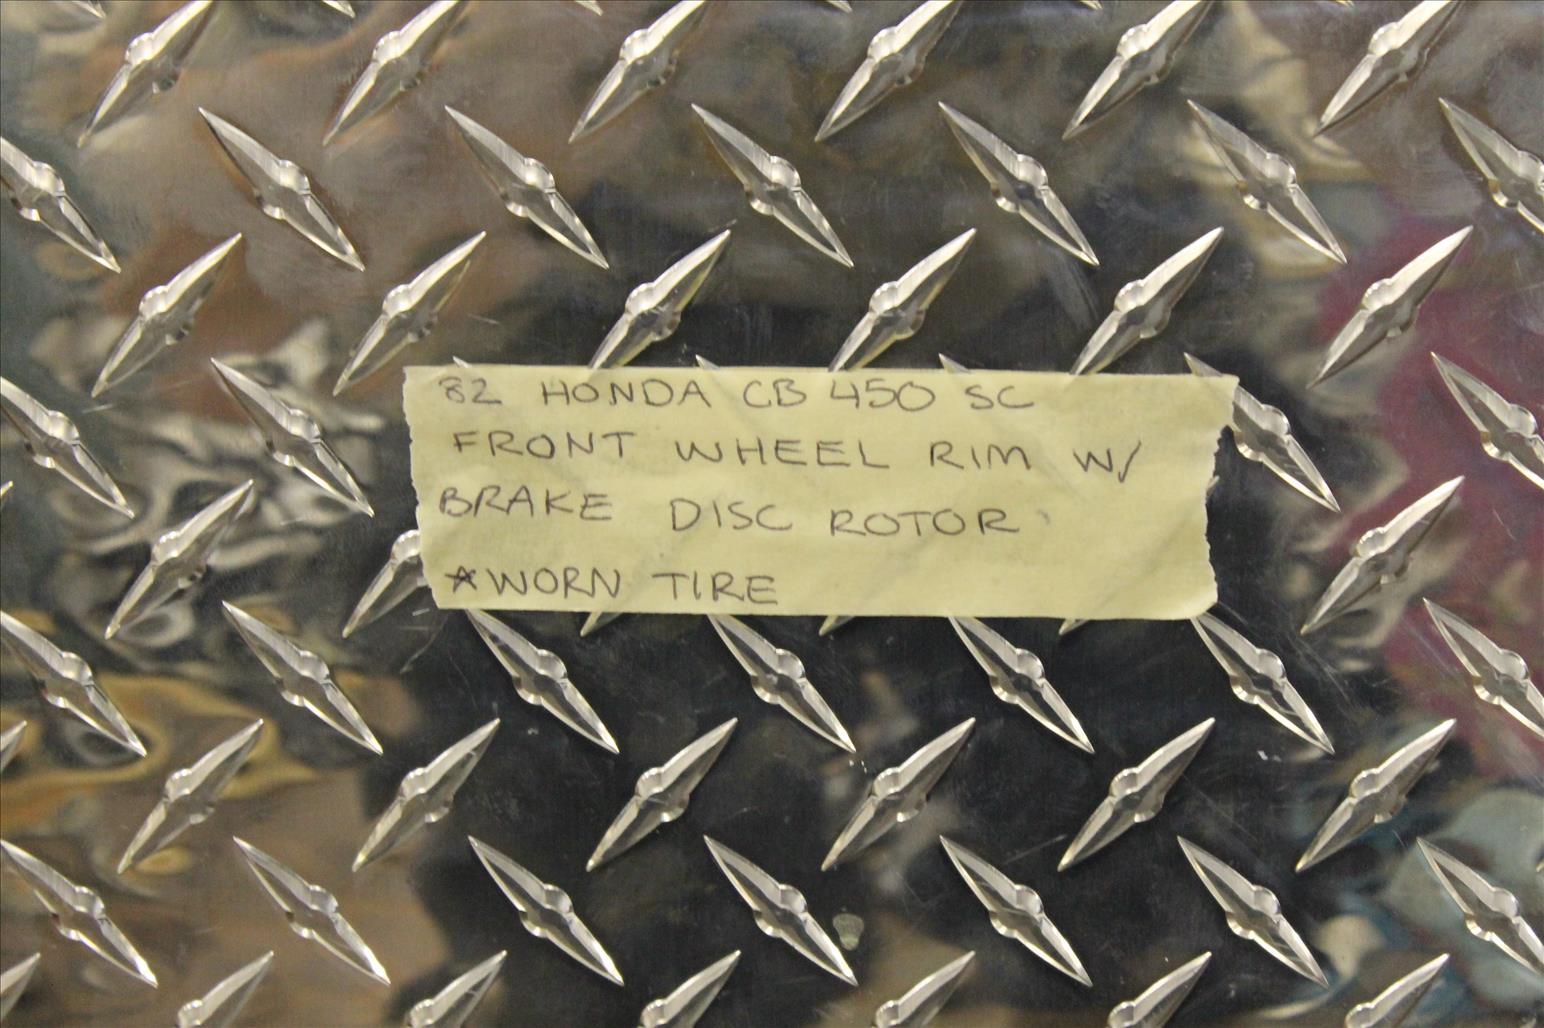 82 HONDA CB 450 SC
FRONT WHEEL RIM W/
BRAKE DISC ROTOR
*WORN TIRE